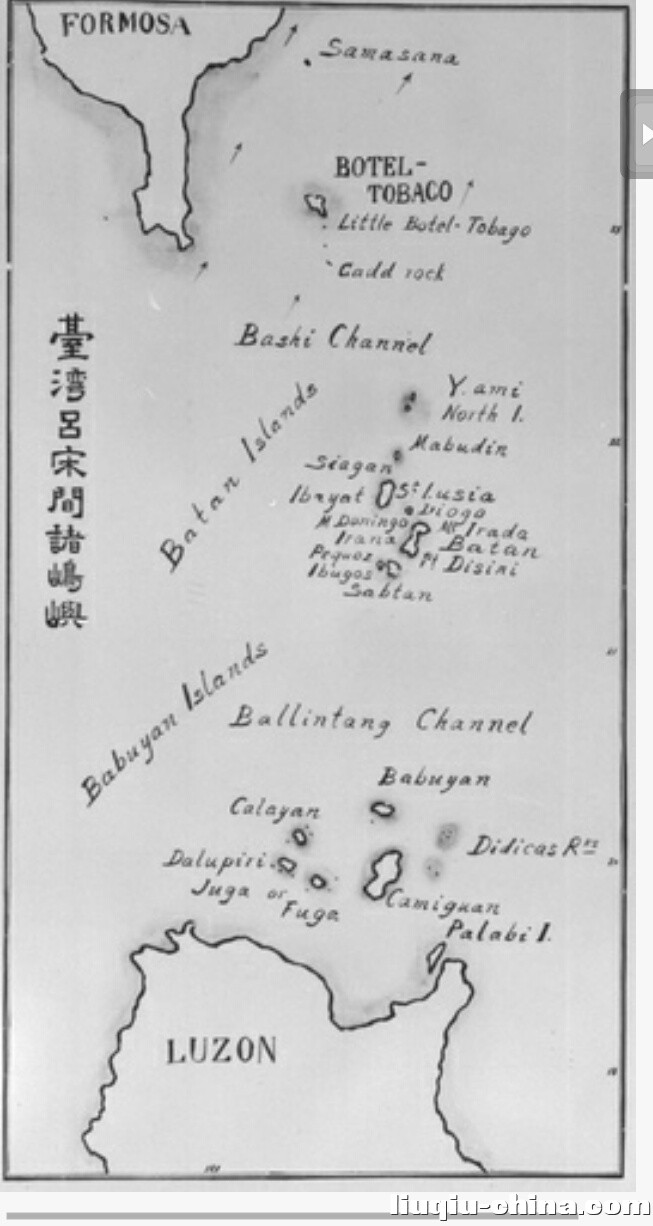 FORMOSA
Samasana
BOTEL-
TOBACO
Little Botel-Tobago
Gadd rock
Bashi Channel
臺湾呂宋間諸嶋嶼
Batan Islands
Y.ami
North I.
Mabudin
Siagan
Ibayat
St Lusia
Diogo
M Domingo
Mt Irada
Irana
Batan
Pt Disiri
Ibugos
Sabtan
Babuyan Islands
Ballintang Channel
Babuyan
Calayan
Didicas Rks
Dalupiri
Juga or
Fuga
Camiguan
Palabi I.
LUZON
liuqiu-china.com